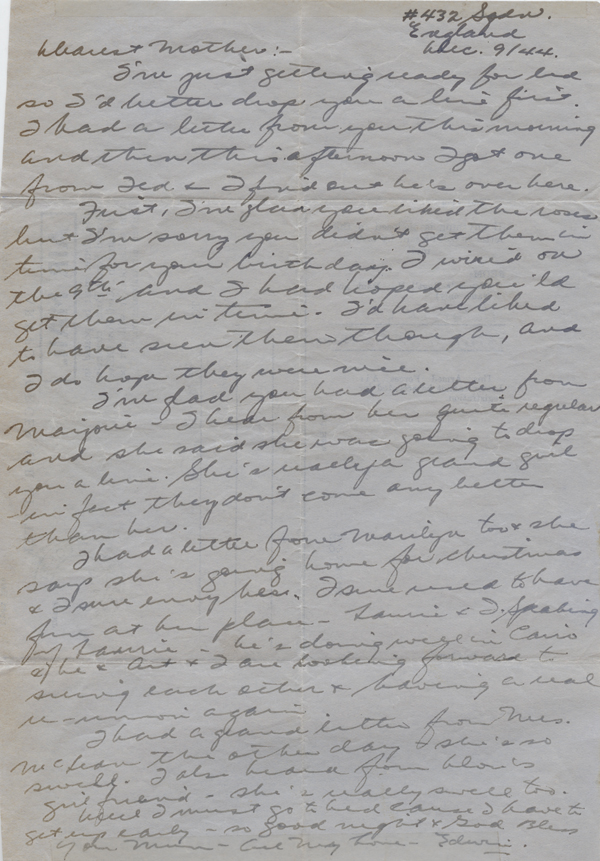 #432 Sqdn.
England
Dec. 9/44.
Dearest Mother:-
I've just getting ready for bed
so I'd better drop you a line first.
I had a letter from you this morning
and then this afternoon I got one
from Ted & I find out he's over here.
First, I'm glad you liked the roses
but I'm sorry you didn't get them in
time for your birthday. I wired on
the 9th and I had hoped you'ld
get them in time. I'd have liked
to have seen them though, and
I do hope they were nice.
I'm glad you had a letter from
Marjorie - I hear from her quite regular
and she said she was going to drop
you a line. She's really a grand girl
- in fact they don't come any better
than her.
I had a letter from Marilyn too & she
says she's going home for Christmas
& I sure envy her. I sure used to have
fun at her place - Laurie & I. Speaking
of Laurie - he's doing well in Cairo
& he & Art & I are looking forward to
seeing each other & having a real
re-union again.
I had a grand letter from Mrs.
McLean the other day & she's so
swell. I also heard from
girlfriend - she's really swell too.
Well I must go to bed cause I have to
get up early - so good night & God Bless
you Mum - all my love - Edwin.